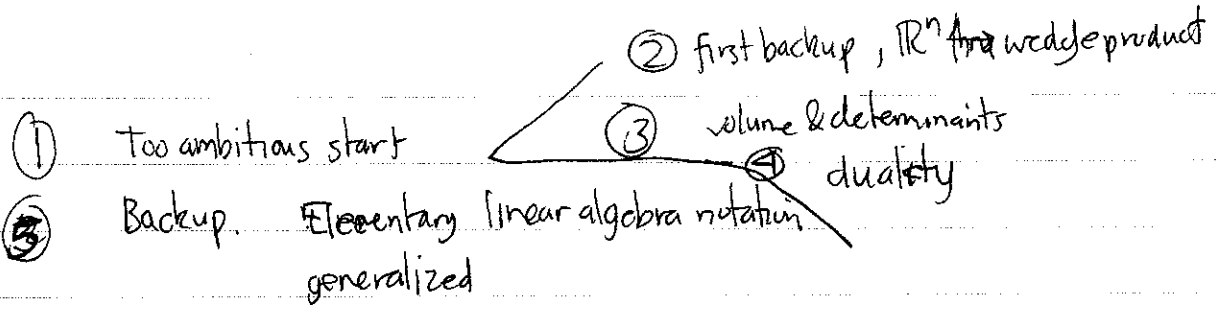 ② first backup, ℝⁿ wedge product
① Too ambitious start
③ volume & determinants
④ duality
⑤ Backup. Elementary linear algebra notation
generalized